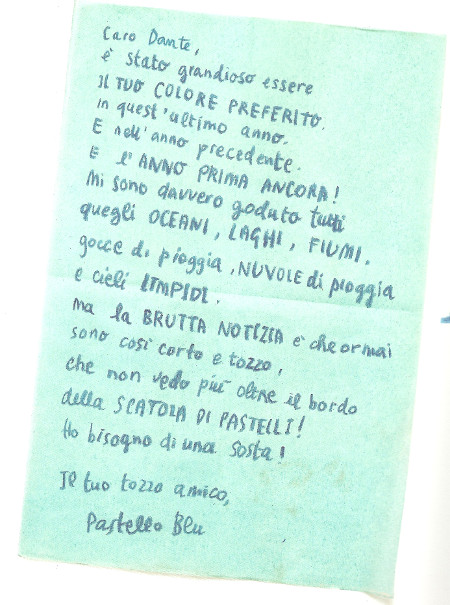 Caro Dante,
è stato grandioso essere
IL TUO COLORE PREFERITO.
in quest'ultimo anno.
E nell'anno precedente.
E l'ANNO PRIMA ANCORA!
Mi sono davvero goduto tutti
quegli OCEANI, LAGHI, FIUMI,
gocce di pioggia, NUVOLE di pioggia
e cieli LIMPIDI.
ma la BRUTTA NOTIZIA è che ormai
sono così corto e tozzo,
che non vedo più oltre il bordo
della SCATOLA DI PASTELLI!
Ho bisogno di una sosta!
Il tuo tozzo amico,
Pastello Blu